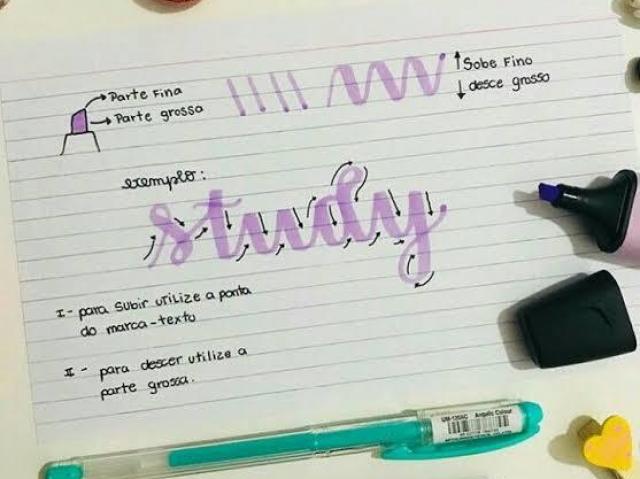 Parte Fina
Parte grossa
↑ Sobe Fino
↓ desce grosso
exemplo:
study
I - para subir utilize a ponta
do marca-texto
II - para descer utilize a
parte grossa.
UM-120AC Angelic Colour